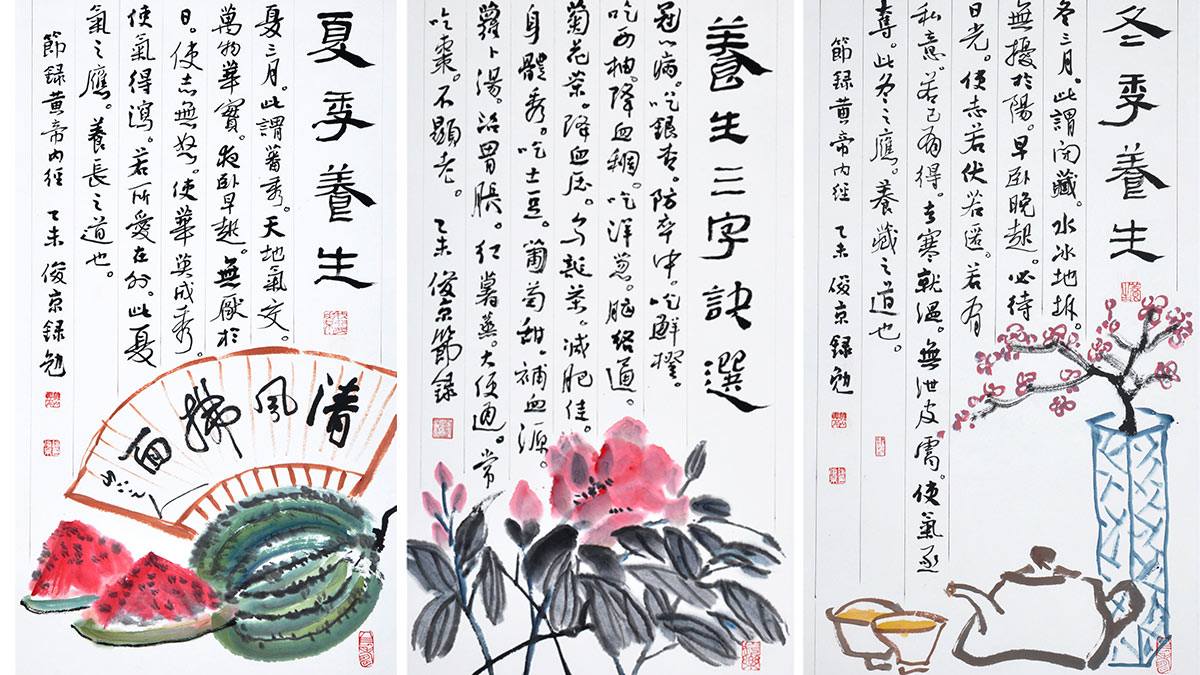 夏季養生
夏三月。此謂蕃秀。天地氣交。
萬物華實。夜臥早起。無厭於
日。使志無怒。使華英成秀。
使氣得瀉。若所愛在外。此夏
氣之應。養長之道也。
節録黄帝内經 乙未 俊京録勉
清風拂面
養生三字訣選
冠心病。吃銀杏。防卒中。吃鮮橙。
吃西柚。降血稠。吃洋葱。脑络通。
菊花茶。降血压。乌龍茶。减肥佳。
身體秀。吃土豆。葡萄甜。補血源。
蘿卜湯。治胃脹。红薯蒸。大便通。常
吃棗。不顯老。
乙未 俊京節録
冬季養生
冬三月。此謂闭藏。水冰地坼。
無擾於陽。早卧晚起。必待
日光。使志若伏若匿。若有
私意。若已有得。去寒就温。無泄皮膚。使氣亟
奪。此冬之應。養藏之道也。
節録黄帝内經 乙未 俊京録勉